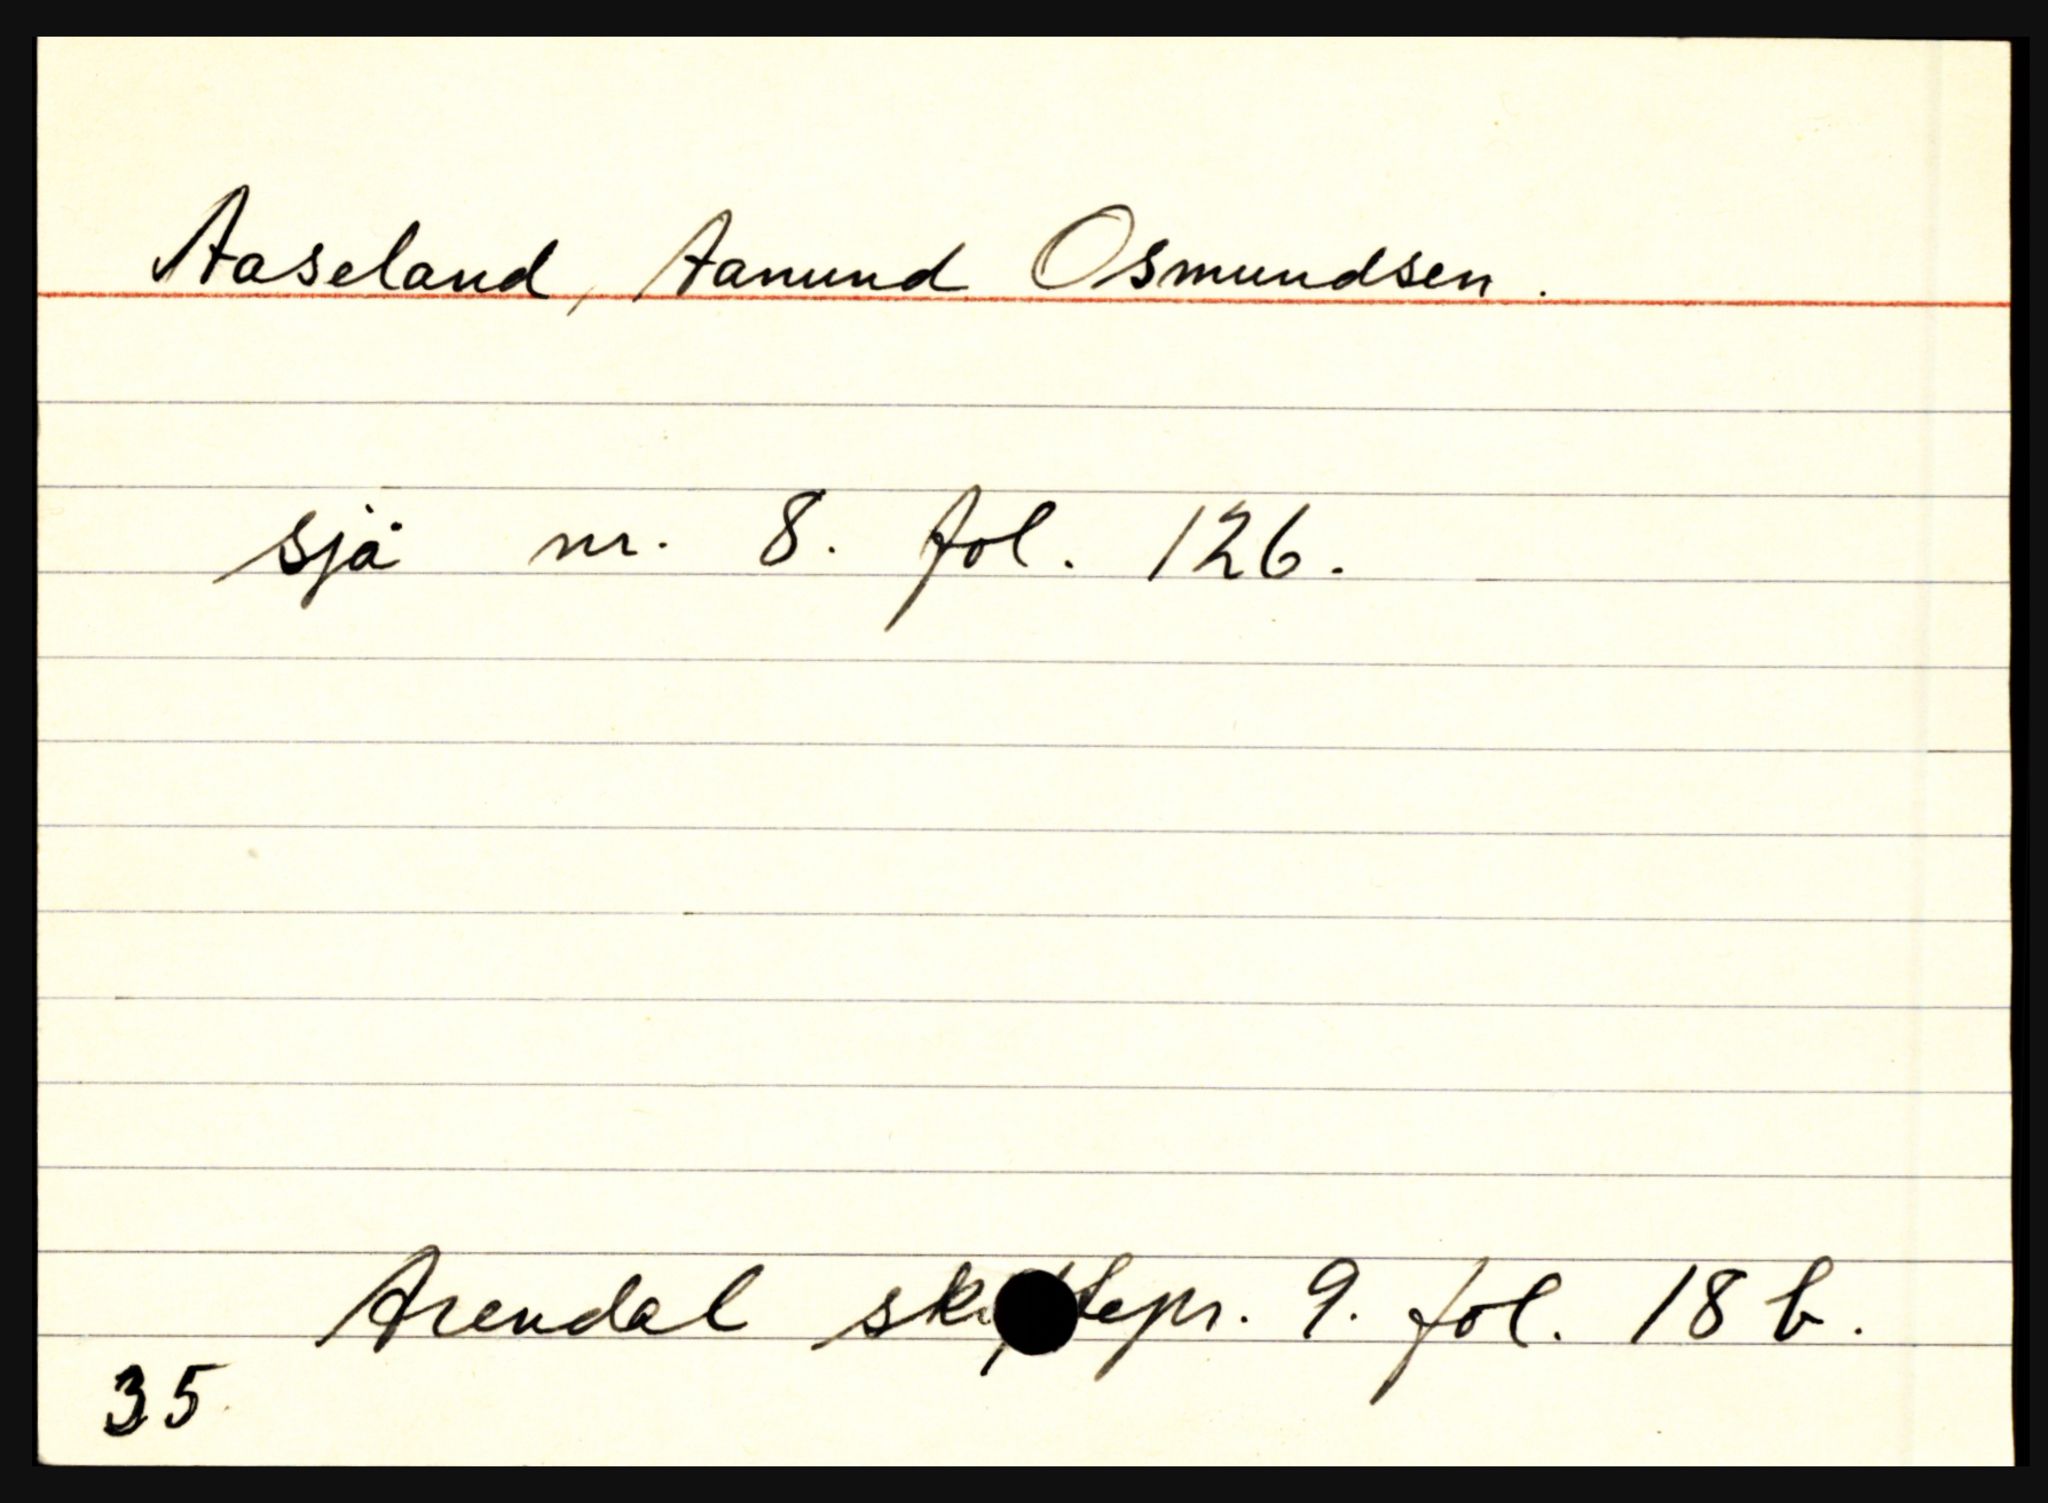 Aaseland, Aanund Osmundsen.
sjå nr. 8. fol. 126.
Arendal skiftepr. 9. fol. 18 b.
35